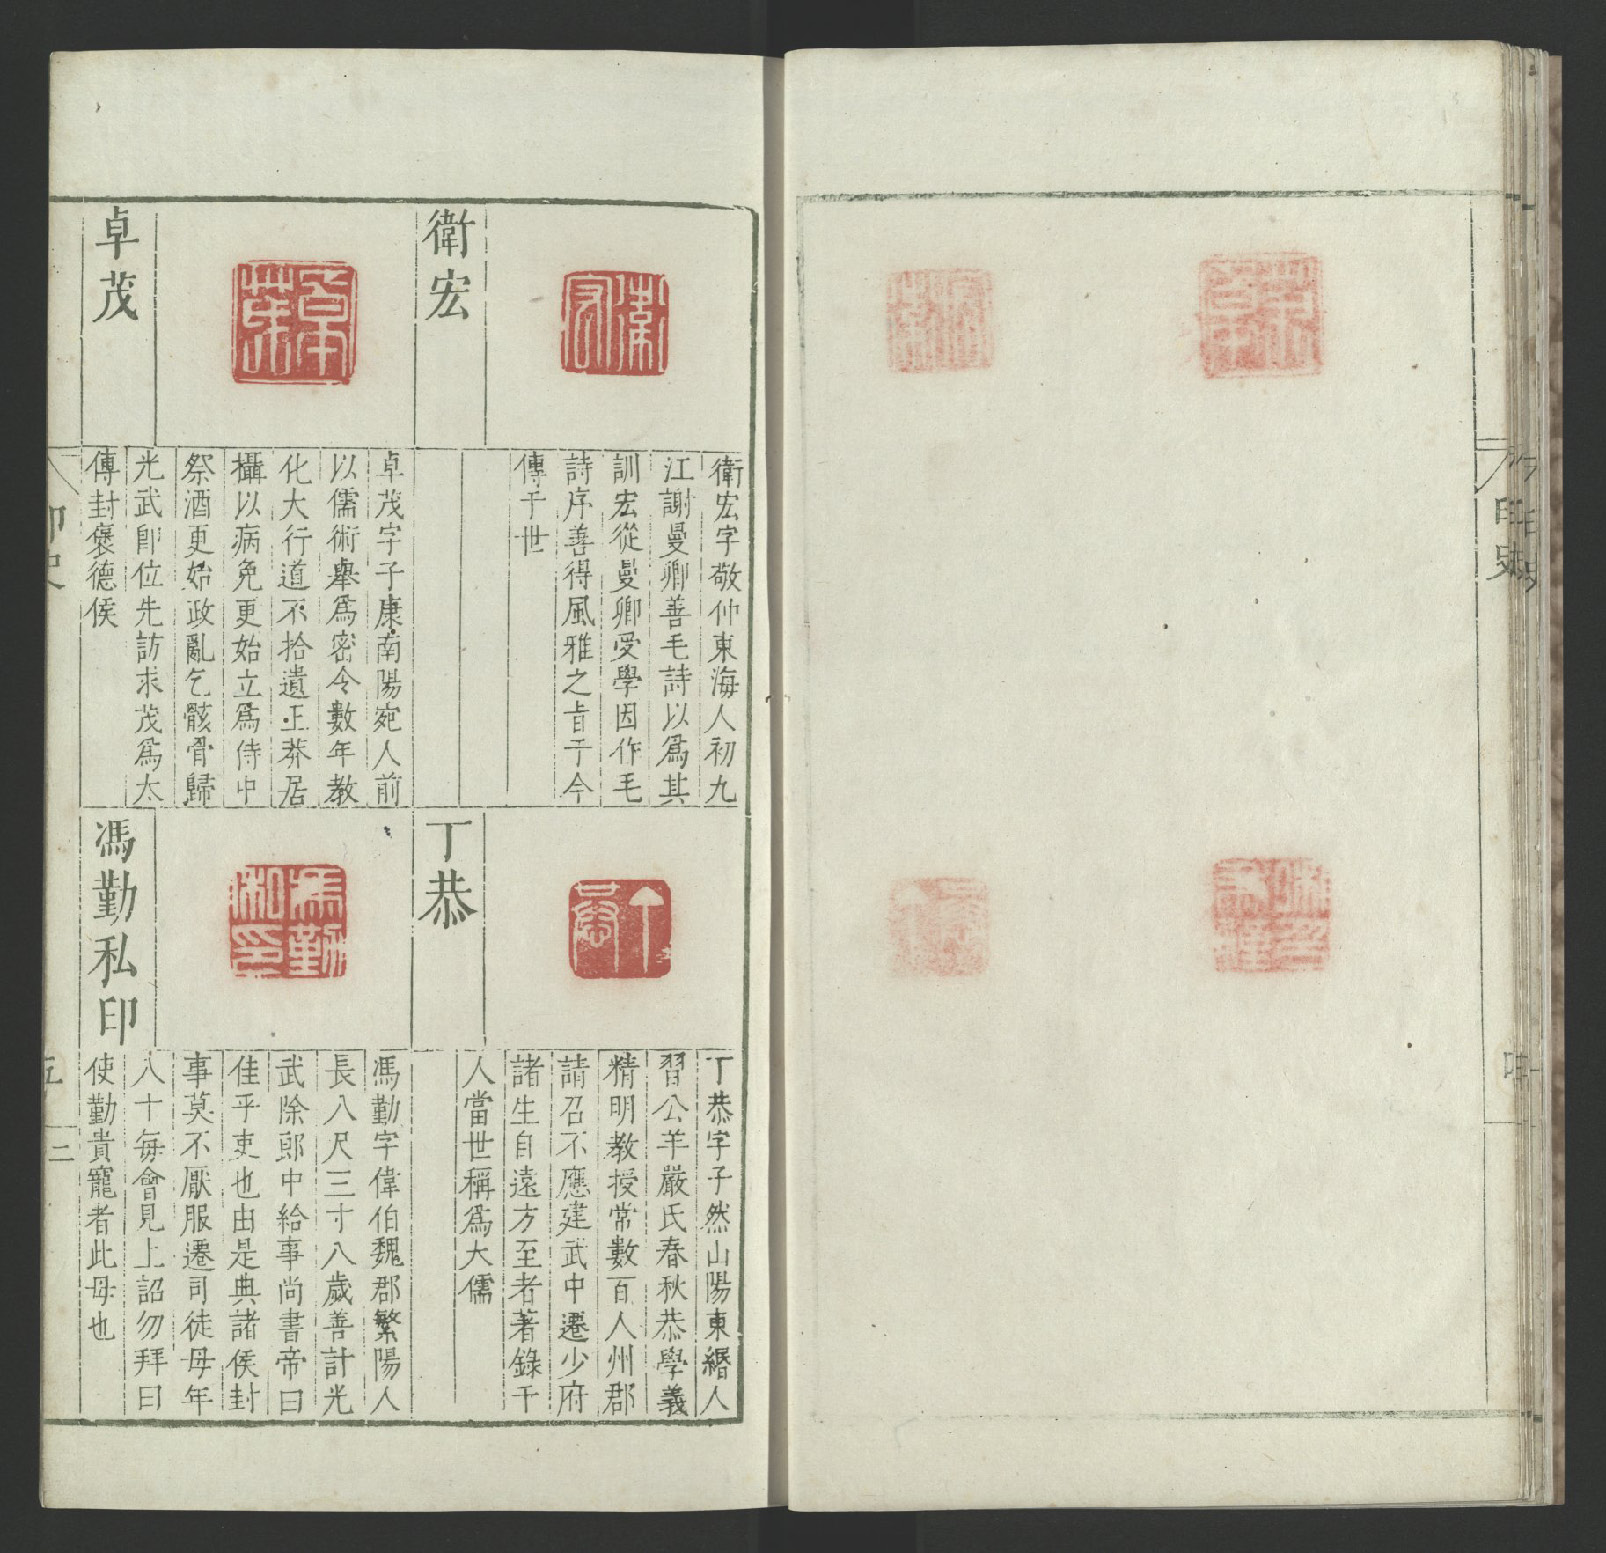 衛宏
衛宏字敬仲東海人初九
江謝曼卿善毛詩以為其
訓宏從曼卿受學因作毛
詩序善得風雅之旨于今
傳于世
卓茂
卓茂字子康南陽宛人前
以儒術舉為密令數年教
化大行道不拾遺王莽居
攝以病免更始立為侍中
祭酒更始政亂乞骸骨歸
光武即位先訪求茂為太
傅封褒德侯
丁恭
丁恭字子然山陽東緡人
習公羊嚴氏春秋恭學義
精明教授常數百人州郡
請召不應建武中遷少府
諸生自遠方至者著錄千
人當世稱為大儒
馮勤私印
馮勤字偉伯魏郡繁陽人
長八尺三寸八歲善計光
武除郎中給事尚書帝曰
佳乎吏也由是典諸侯封
事莫不厭服遷司徒母年
八十每會見上詔勿拜曰
使勤貴寵者此母也
印史
二
印史